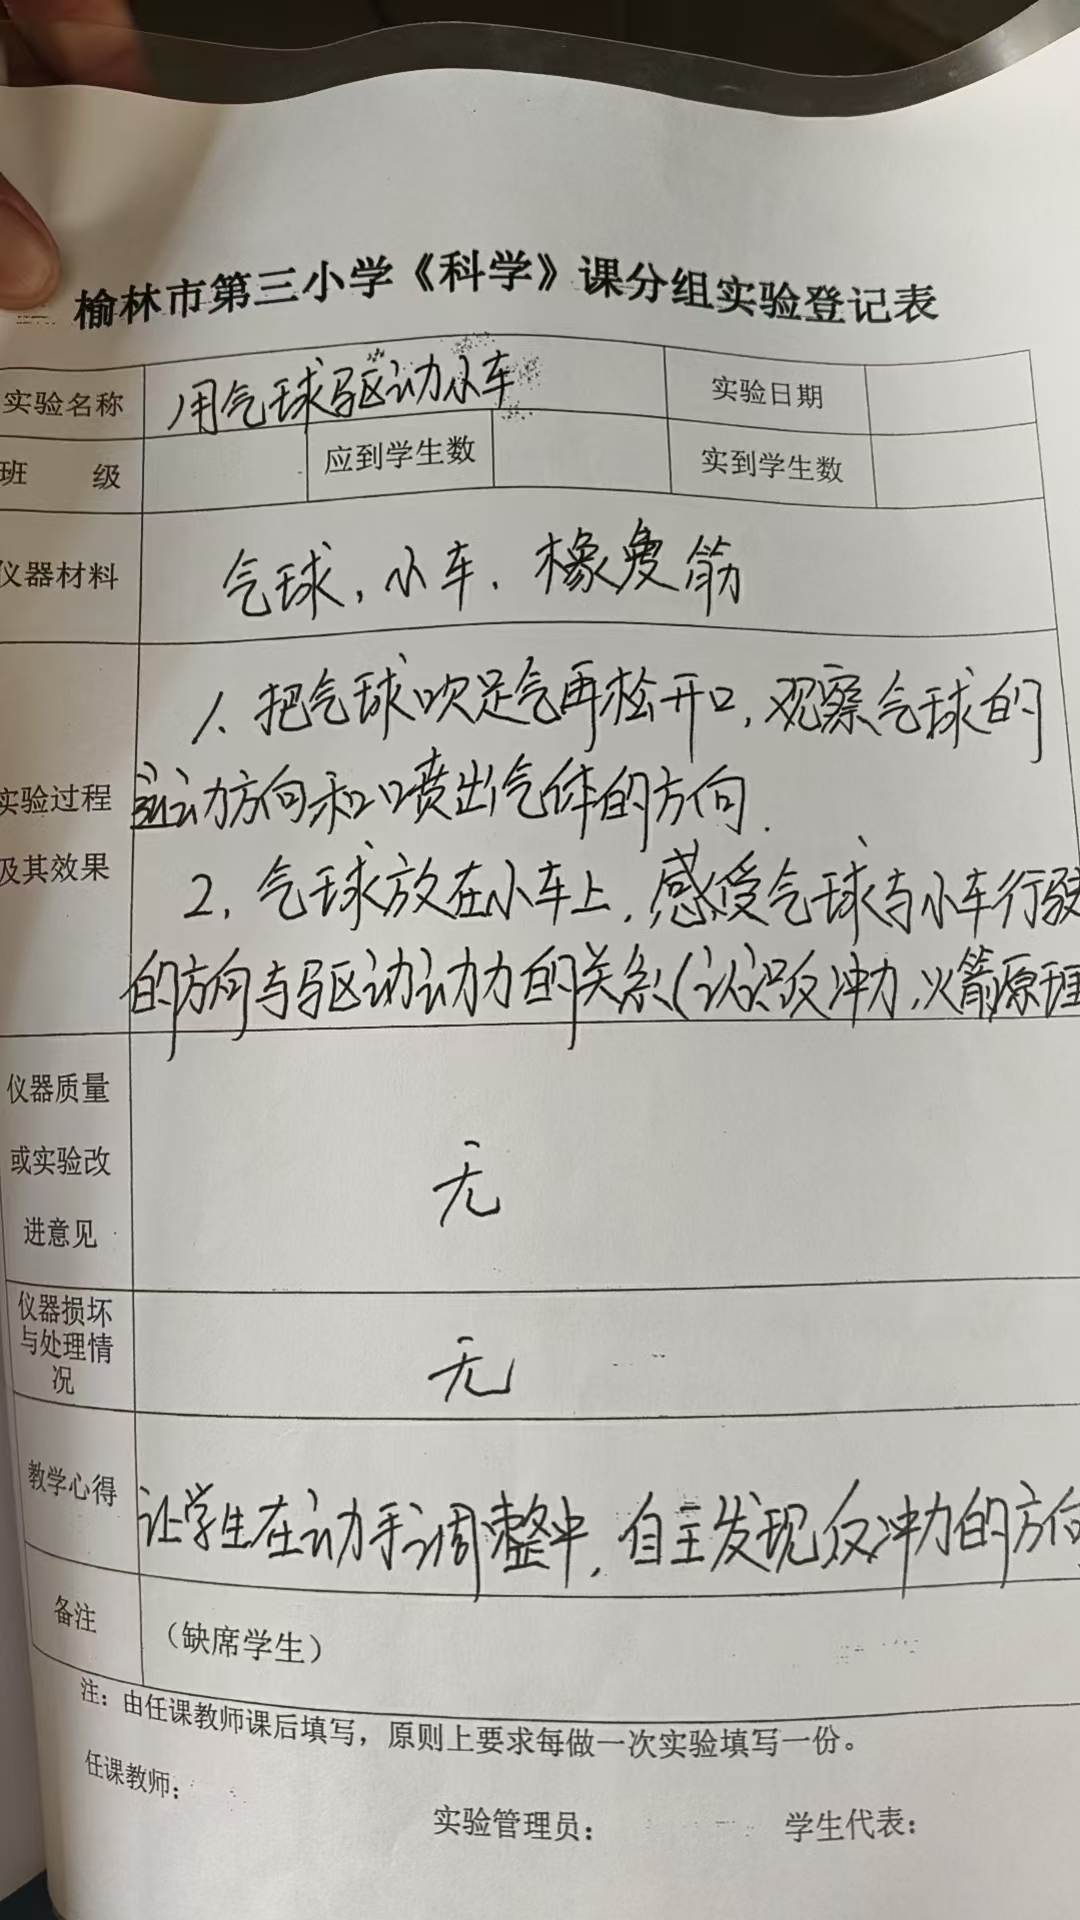 榆林市第三小学《科学》课分组实验登记表
实验名称 用气球驱动小车 实验日期
班 级 应到学生数 实到学生数
仪器材料 气球,小车,橡皮筋
1、把气球吹足气再松开口,观察气球的
实验过程 运动方向和口喷出气体的方向.
及其效果 2,气球放在小车上,感受气球与小车行驶
的方向与驱动动力的关系(认识反冲力,火箭原理
仪器质量
或实验改 无
进意见
仪器损坏
与处理情 无
况
教学心得 让学生在动手调整中,自主发现反冲力的方向
备注 (缺席学生)
注:由任课教师课后填写,原则上要求每做一次实验填写一份。
任课教师:
实验管理员: 学生代表: